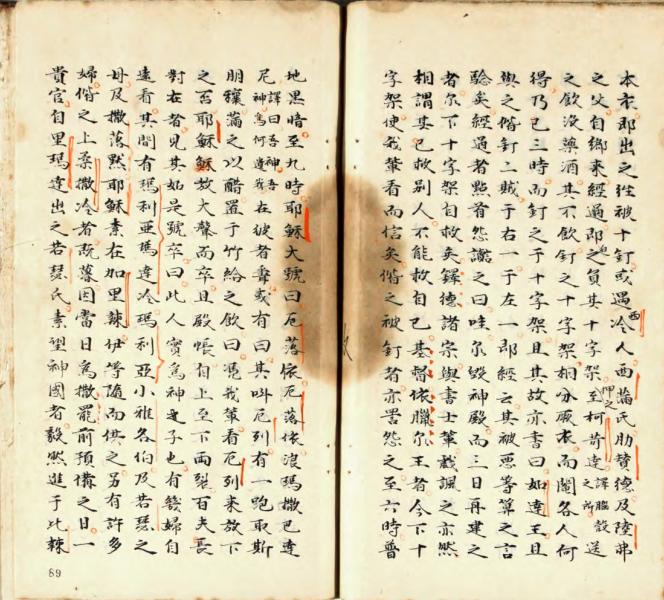 本衣即出之徃被十釘或遇西冷人西蒲氏肋賛德及陸弗
之父自鄉来經過即押之負其十字架至柯荷達譯髑髏之所送
之飲没藥酒其不飲釘之十字架相分厥衣而鬮各人何
得乃已三時而釘之于十字架且其故亦書曰如達王且
與之偕釘二賊于右一于左一即經云其被惡等算之言
驗矣經過者點首怨謗之曰哇尔毀神殿而三日再建之
者尔下十字架自救矣鐸德諸宗與書士輩戲諷之亦然
相謂其已救别人不能救自己基督依臘尔王者今下十
字架使我輩看而信矣偕之被釘者亦詈怨之至六時普
地黒暗至九時耶穌大號曰厄落依厄落依浪瑪撒巴達
尼譯曰吾神吾神為何遺我在彼者聿或有曰其呌厄列有一跑取斯
朋穰蒲之以醋置于竹給之飲曰慿我輩看厄列来放下
之否耶穌放大聲而卒且殿帳自上至下兩裂百夫長
對在者見其如是號卒曰此人實為神之子也有幾婦自
遠看其間有瑪利亞瑪達冷瑪利亞小雅各伯及若瑟之
母及撒落黙耶穌素在加里辣伊等隨而供之另有許多
婦偕之上柔撒冷者既暮因當日為撒罷前預備之日一
貴官自里瑪達出之若瑟氏素望神國者毅然進于比辣
89